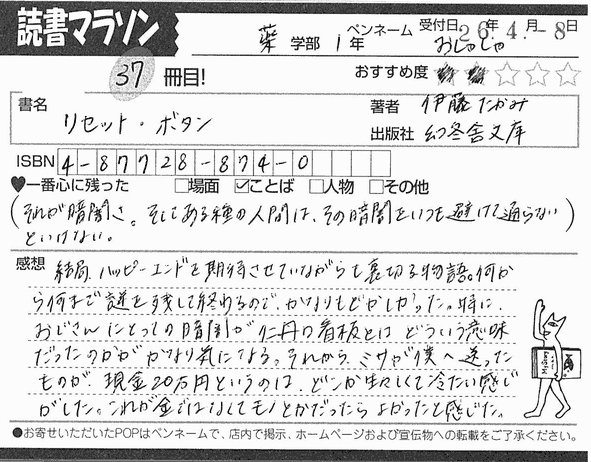 読書マラソン
薬 学部 1年 ペンネーム おしゃしゃ 受付日 26年 4月-8日
37 冊目! おすすめ度 ★★☆☆☆
書名 リセット・ボタン 著者 伊藤たかみ
出版社 幻冬舎文庫
ISBN 4-87728-874-0
♥一番心に残った □場面 ☑ことば □人物 □その他
(それが暗闇さ。そしてある種の人間は、その暗闇をいつも避けて通らない
といけない。)
感想 結局、ハッピーエンドを期待させていながらも裏切る物語。何か
ら何まで謎を残して終わるので、かなりもどかしかった。特に、
おじさんにとっての暗闇が仁丹の看板とはどういう意味
だったのかがかなり気になる。それから、ミサが僕へ送った
ものが、現金20万円というのは、どこか生々しくて冷たい感じ
がした。これが金ではなくてモノとかだったらよかったと感じた。
●お寄せいただいたPOPはペンネームで、店内で掲示、ホームページおよび宣伝物への転載をご了承ください。